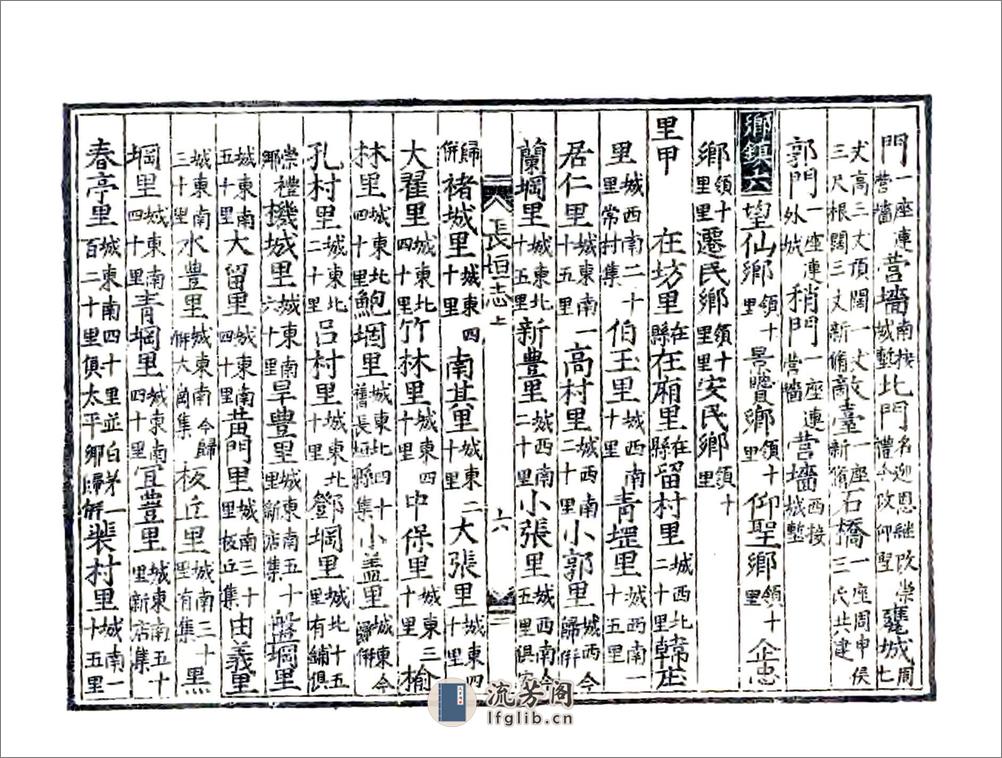 門一座連營墻營墻南接城塹北門名迎恩継改崇禮今改仰聖甕城周七
丈高三丈頂闊一丈三尺根闊三丈新脩敵臺一座新脩石橋一座周申侯三氏共建
郭門一座連外城稍門一座連營墻營墻西接城塹
鄉鎮六望仙鄉領十里景贒鄉領十里仰聖鄉領十里企忠
鄉領十里遷民鄉領十里安民鄉領十里
里甲 在坊里在縣在廂里在縣留村里城西北二十里韓庄
里城西南二十里常村集伯玉里城西南十里青堽里城西南一十五里
居仁里城西南一十五里高村里城西南二十里小郭里城西今歸併
蘭堽里城東北十五里新豊里城西南二十里小張里城西南今五里俱
歸併褚城里城東四十里南其里城東二十里大張里城東四十里
長垣志上 六
大翟里城東北四十里竹林里城東北四十里中保里城東三十里榆
林里城東北四十里鮑堌里城東北四十里舊長垣縣集小盖里城東今歸併
孔村里城東北二十里呂村里城東北十里鄧堈里城北十五里有鋪俱
崇禮鄉機城里城東南六十里旱豊里城東南五十里新店集盤堈里
城東南五十里大留里城東南四十里黃門里城東南三十里板丘集由義里
城東南三十里水豊里城東南今歸併六崗集板丘里城南三十里有集黑
堈里城東南四十里青堈里城東南四十里宜豊里城東南五十里新店集
春亭里城東南四十里並白茅一百二十里俱太平鄉歸併裴村里城南一十五里
流芳阁
lfglib.cn